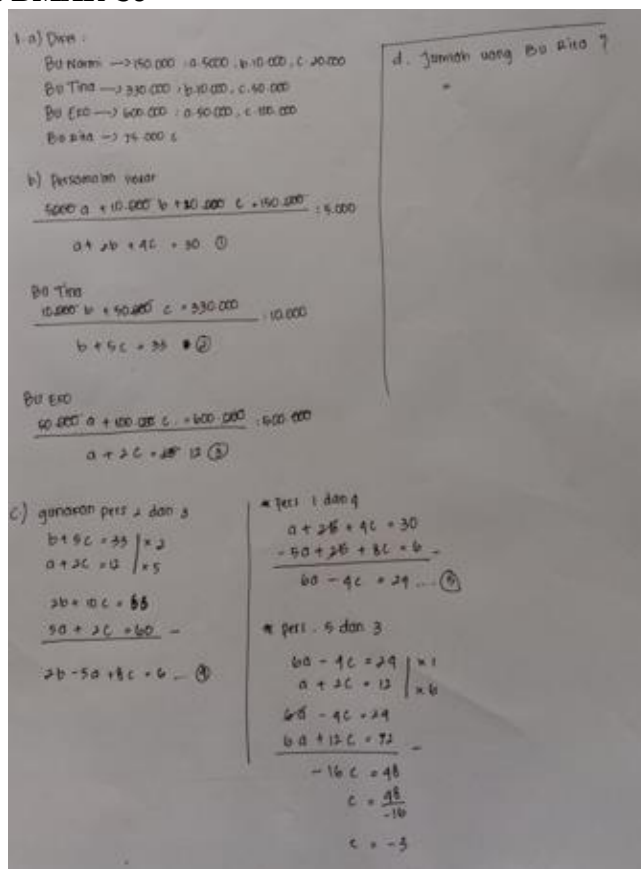 1. a) Diket :
Bu Narmi —> 150.000 : a. 5000, b. 10.000, c. 20.000
Bu Tina —> 330.000 : b. 10.000, c. 50.000
Bu Eko —> 600.000 : a. 50.000, c. 100.000
Bu Rita —> 75.000 c
b) Persamaan
5000 a + 10.000 b + 20.000 c = 150.000 : 5.000
a + 2b + 4c = 30 ①
Bu Tina
10.000 b + 50.000 c = 330.000 : 10.000
b + 5c = 33 ②
Bu Eko
50.000 a + 100.000 c = 600.000
a + 2c = 12 ③
c) gunakan pers 2 dan 3
b + 5c = 33 | x 2
a + 2c = 12 | x 5
2b + 10c =
5a + 2c = 60 -
2b - 5a + 8c = 6 ... ④
* Pers 1 dan 4
a + 2b + 4c = 30
-5a + 2b + 8c = 6 -
6a - 4c = 24 ... ⑤
* pers. 5 dan 3
6a - 4c = 24 | x 1
a + 2c = 12 | x 6
6a - 4c = 24
6a + 12c = 72 -
-16c = 48
c = 48/-16
c = -3
d. Jumlah uang Bu Rita ?
=